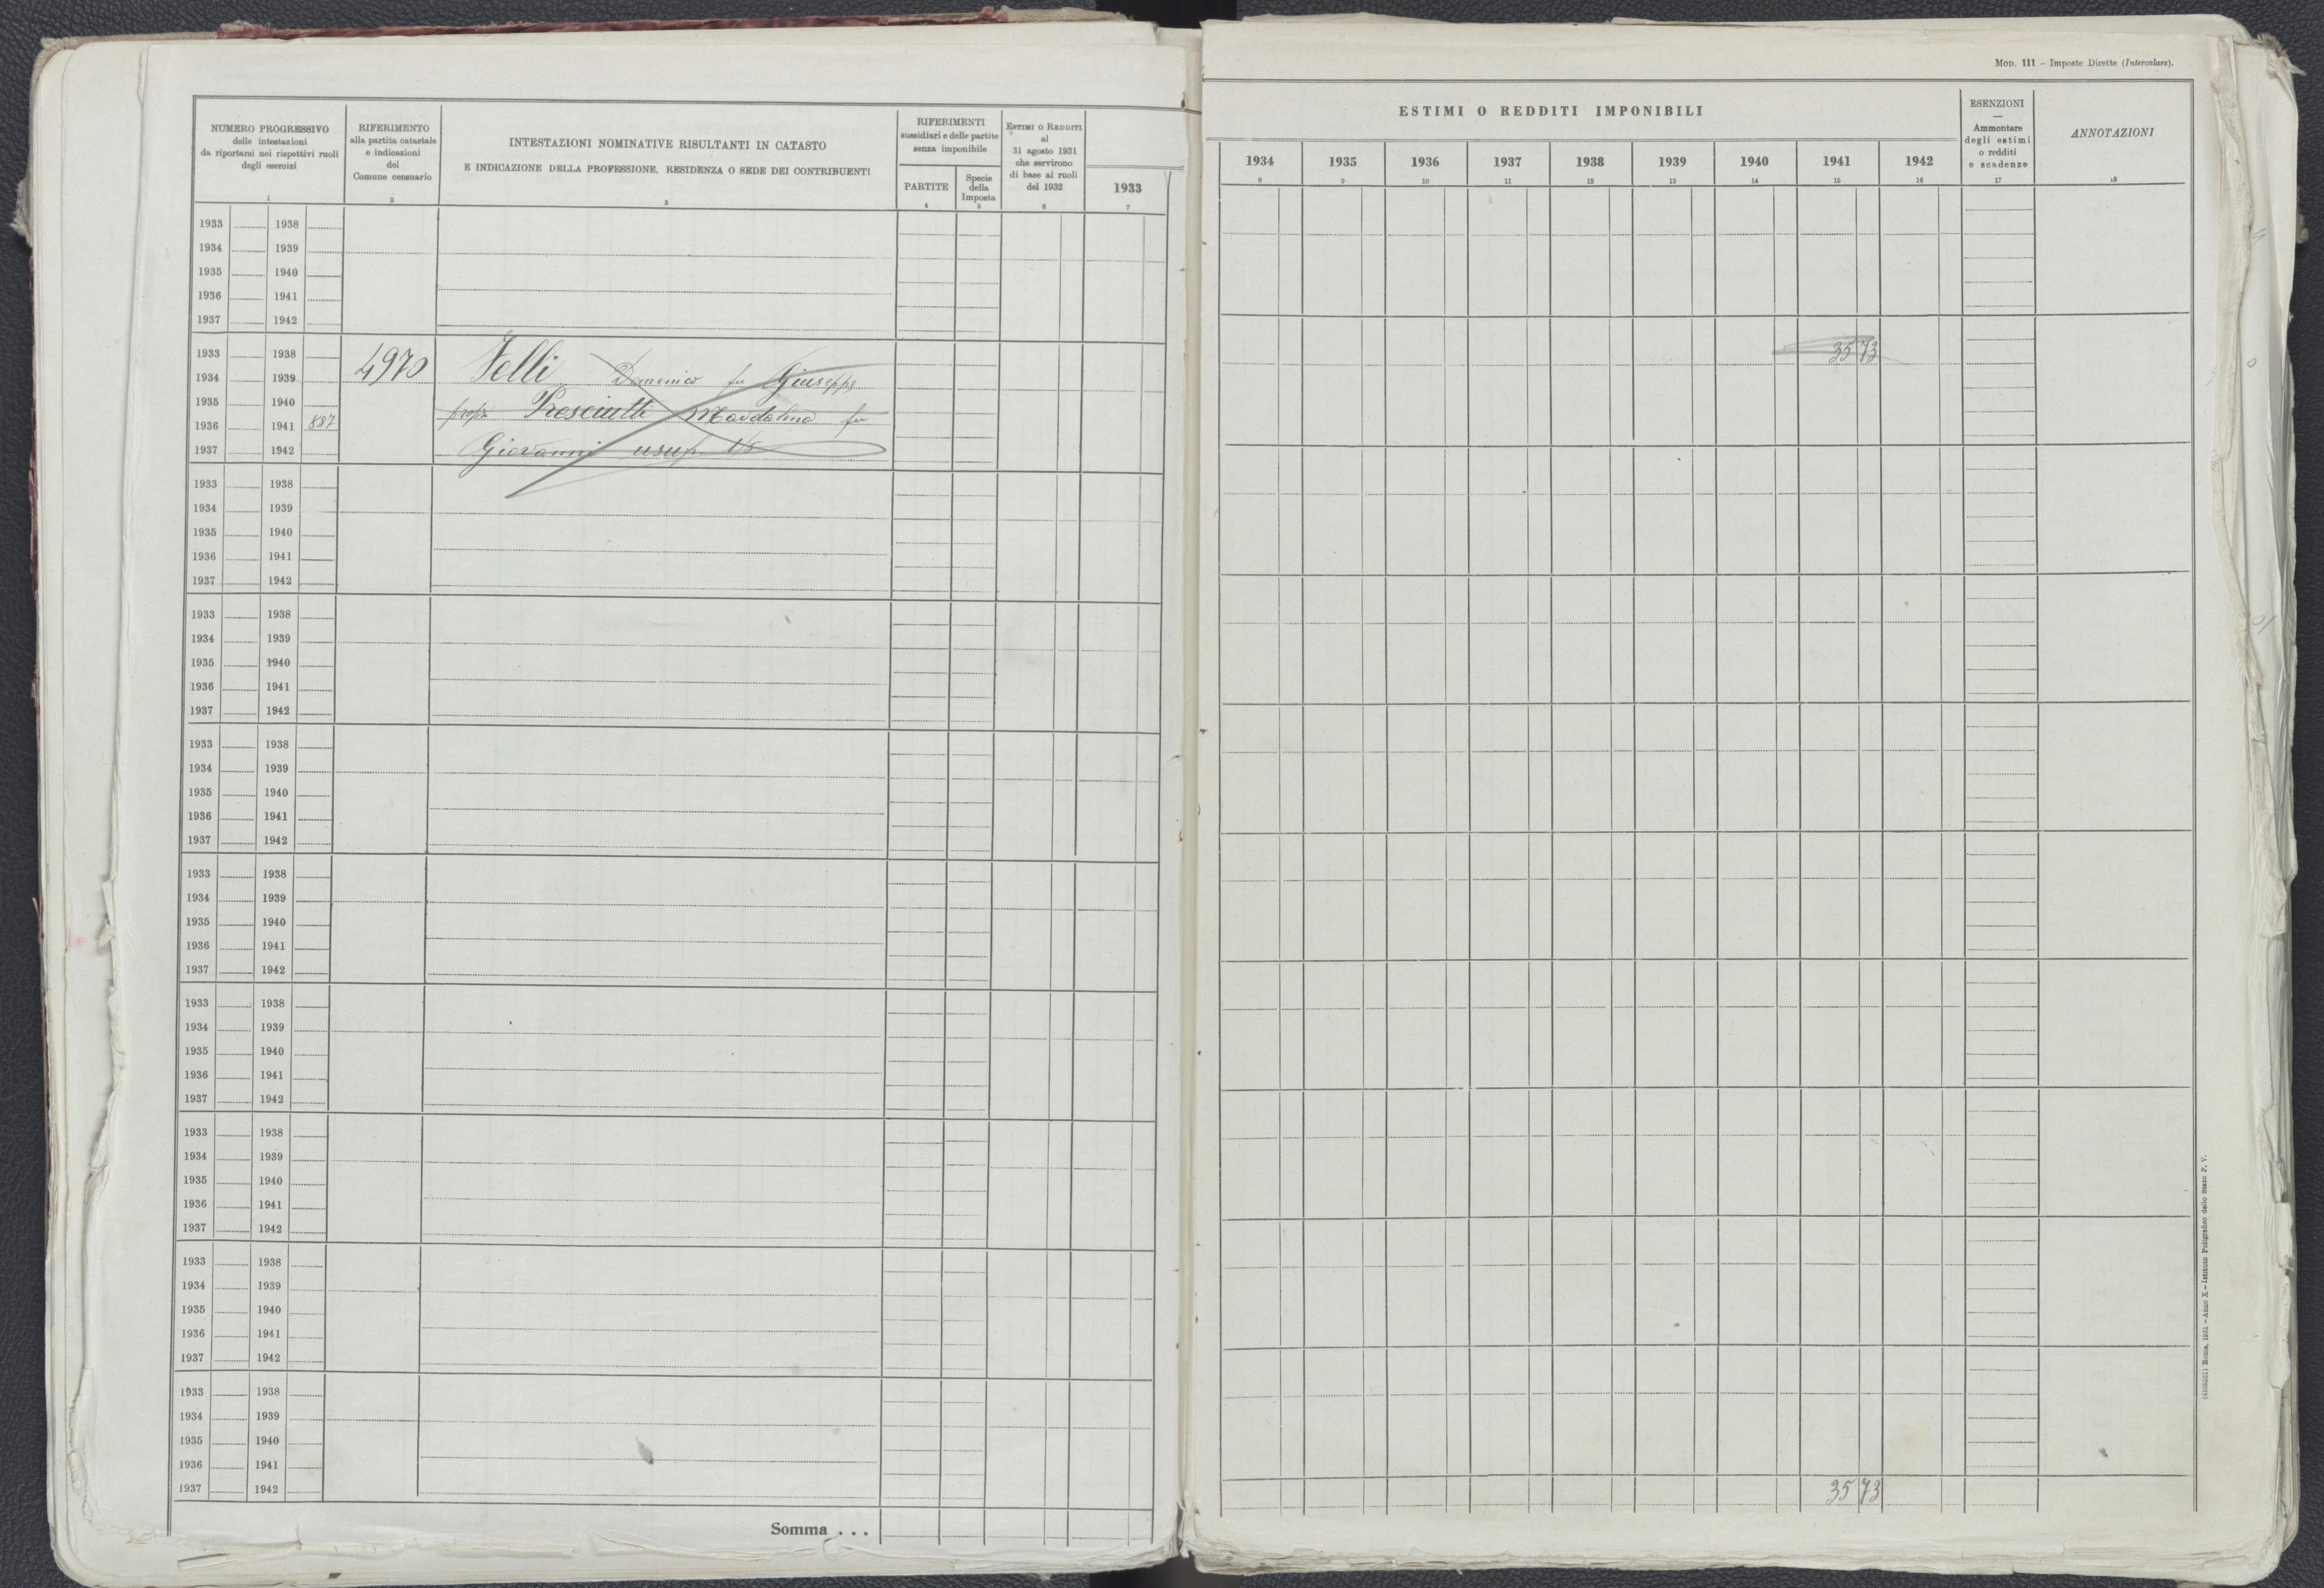 MOD. 111 – Imposte Dirette (Intercalare).
NUMERO PROGRESSIVO
delle intestazioni
da riportarsi nei rispettivi ruoli
degli esercizi
1
RIFERIMENTO
alla partita catastale
e indicazioni
del
Comune censuario
2
INTESTAZIONI NOMINATIVE RISULTANTI IN CATASTO
E INDICAZIONE DELLA PROFESSIONE, RESIDENZA O SEDE DEI CONTRIBUENTI
3
RIFERIMENTI
sussidiari e delle partite
senza imponibile
PARTITE
4
Specie
della
Imposta
5
ESTIMI O REDDITI
al
31 agosto 1931
che servirono
di base ai ruoli
del 1932
6
1933
7
ESTIMI O REDDITI IMPONIBILI
1934 1935 1936 1937 1938 1939 1940 1941 1942
8 9 10 11 12 13 14 15 16
ESENZIONI
—
Ammontare
degli estimi
o redditi
e scadenze
17
ANNOTAZIONI
18
1933 1938
1934 1939
1935 1940
1936 1941
1937 1942
1933 1938 4970 Felli Domenico fu Giuseppe 35 73
1934 1939
1935 1940 prop. Presciutti Maddalena fu
1936 1941 887
1937 1942 Giovanni usuf. 1/3
1933 1938
1934 1939
1935 1940
1936 1941
1937 1942
1933 1938
1934 1939
1935 1940
1936 1941
1937 1942
1933 1938
1934 1939
1935 1940
1936 1941
1937 1942
1933 1938
1934 1939
1935 1940
1936 1941
1937 1942
1933 1938
1934 1939
1935 1940
1936 1941
1937 1942
1933 1938
1934 1939
1935 1940
1936 1941
1937 1942
1933 1938
1934 1939
1935 1940
1936 1941
1937 1942
1933 1938
1934 1939
1935 1940
1936 1941
1937 1942
Somma . . . 35 73
Roma, 1931 – Anno X – Istituto Poligrafico dello Stato P. V.